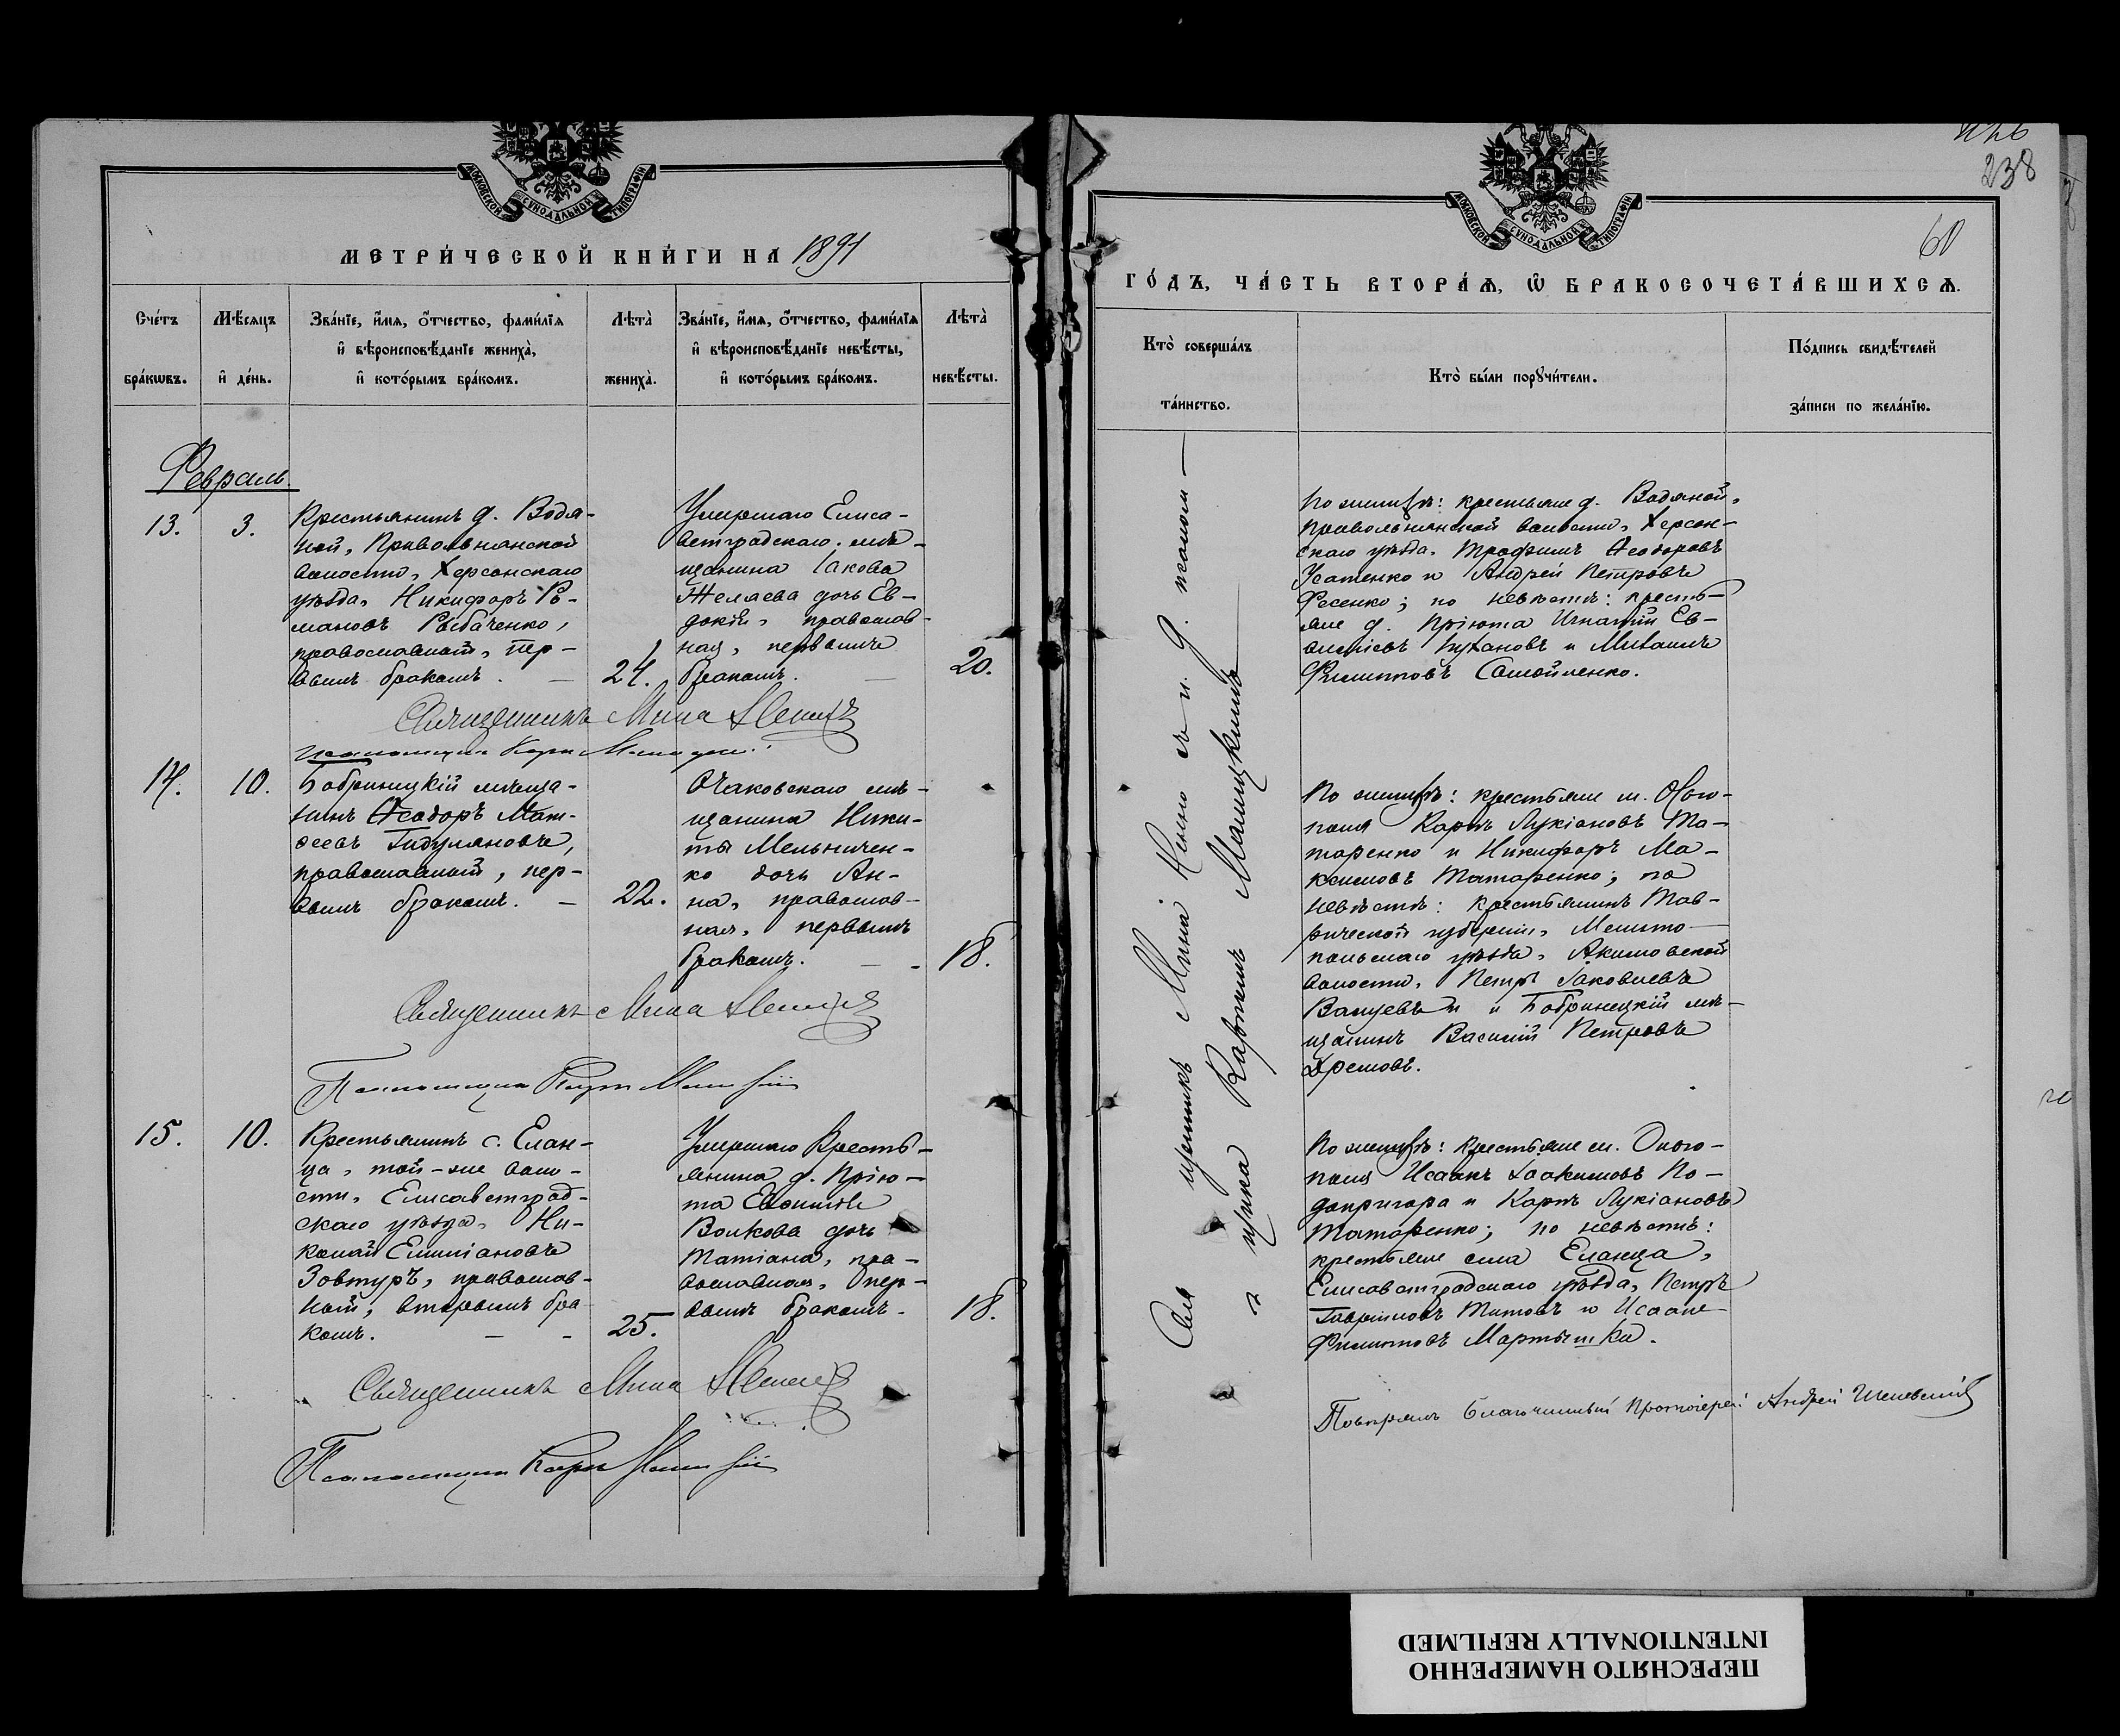 МОСКОВСКОЙ СѴНОДАЛЬНОЙ ТИПОГРАФІИ
МЕТРИ́ЧЕСКОЙ КНИ́ГИ НА 1891
Сче́тъ бра́кѡвъ.
Мѣ́сяцъ и де́нь.
Зва́нїе, и́мя, о́тчество, фами́лїя
и вѣроисповѣ́данїе жениха̀,
и кото́рымъ бра́комъ.
Лѣта̀
жениха̀.
Зва́нїе, и́мя, о́тчество, фами́лїя
и вѣроисповѣ́данїе невѣ́сты,
и кото́рымъ бра́комъ.
Лѣта̀
невѣ́сты.
Февраль
13.
3.
Крестьянинъ д. Водя-
ной, Привольнянской
волости, Херсонскаго
уѣзда, Никифоръ Ро-
мановъ Рыбаченко,
православный, пер-
вымъ бракомъ. —
24.
Умершаго Елиса-
ветградскаго мѣ-
щанина Іакова
Желаева дочь Ев-
докія, православ-
ная, первымъ
бракомъ. —
20.
Священникъ Мина
14.
10.
Бобринецкій мѣща-
нинъ Ѳеодоръ Мат-
ѳеевъ Гидуляновъ,
православный, пер-
вымъ бракомъ. —
22.
Очаковскаго мѣ-
щанина Ники-
ты Мельничен-
ко дочь Ан-
на, православ-
ная, первымъ
бракомъ. — -
18.
Священникъ Мина
Псаломщикъ Карпъ
15.
10.
Крестьянинъ с. Елан-
ца, той-же воло-
сти, Елисаветград-
скаго уѣзда, Ни-
колай Емиліановъ
Зовтуръ, православ-
ный, вторымъ бра-
комъ. — -
25.
Умершаго Кресть-
янина д. Прію-
та Евѳимія
Волкова дочь
Татіана, пра-
вославная, пер-
вымъ бракомъ.
18.
Священникъ Мина
Псаломщикъ Карпъ
238
60
МОСКОВСКОЙ СѴНОДАЛЬНОЙ ТИПОГРАФІИ
ГО́ДЪ, ЧА́СТЬ ВТОРА́Ѧ, Ѿ БРАКОСОЧЕТА́ВШИХСѦ.
Кто̀ соверша́лъ
та́инство.
Кто̀ бы́ли порꙋчи́тели.
По́дпись свидѣ́телей
за́писи по жела́нїю.
Священникъ Мина съ и. д. псалом-
щика Карпомъ
По женихѣ: крестьяне д. Водяной,
Привольнянской волости, Херсон-
скаго уѣзда, Трофимъ Ѳеодоровъ
Усатенко и Андрей Петровъ
Фесенко; по невѣстѣ: кресть-
яне д. Пріюта Игнатій Ев-
и Михаилъ
Филипповъ Самойленко.
По женихѣ: крестьяне м. Ольго-
поля Карпъ Лукіановъ Та-
таренко и Никифоръ Ма-
ксимовъ Татаренко; по
невѣстѣ: крестьянинъ Тав-
рической губерніи, Мелито-
польскаго уѣзда, Акимовской
волости, Петръ Іаковлевъ
и Бобринецкій мѣ-
щанинъ Василій Петровъ
По женихѣ: крестьяне м. Ольго-
поля Исаакъ Іоакимовъ По-
допригора и Карпъ Лукіановъ
Татаренко; по невѣстѣ:
крестьяне села Еланца,
Елисаветградскаго уѣзда, Петръ
Гавріиловъ Титовъ и Исаакъ
Филипповъ Мартышка.
Повѣрялъ Благочинный Протоіерей Андрей
ПЕРЕСНЯТО НАМЕРЕННО
INTENTIONALLY REFILMED